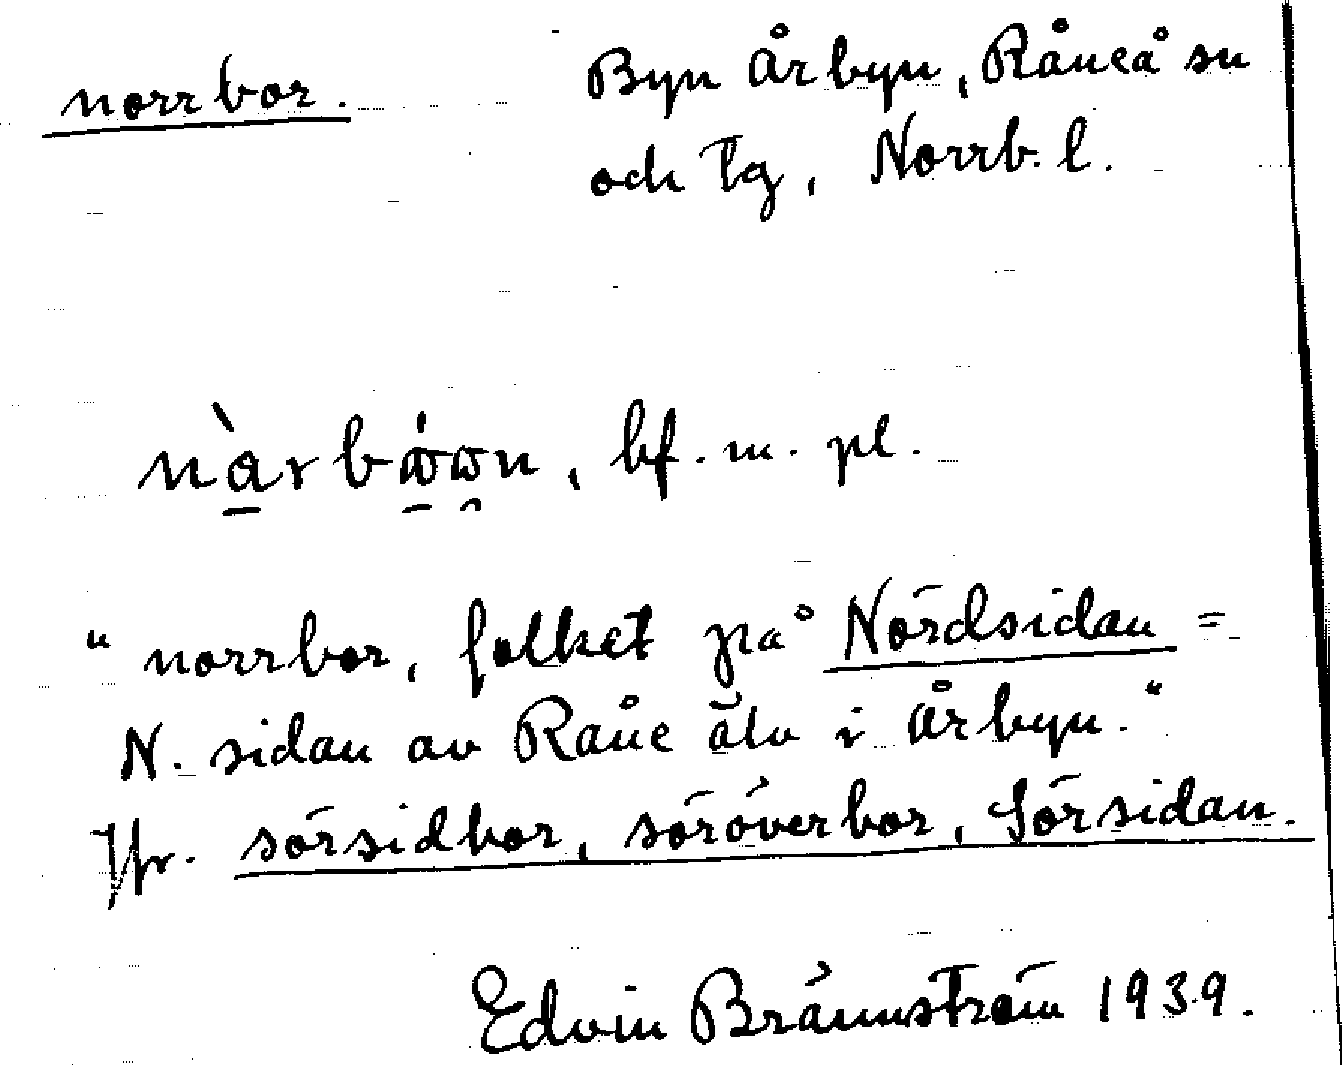 norrbor.
Byn Årbyn, Råneå sn
och tg, Norrb. l.
bf. m. pl.
"norrbor, folket på Nördsidan =
N. sidan av Råne älv i Årbyn."
Jfr. sörsidbor, söröverbor, Sörsidan.
Edvin Brännström 1939.